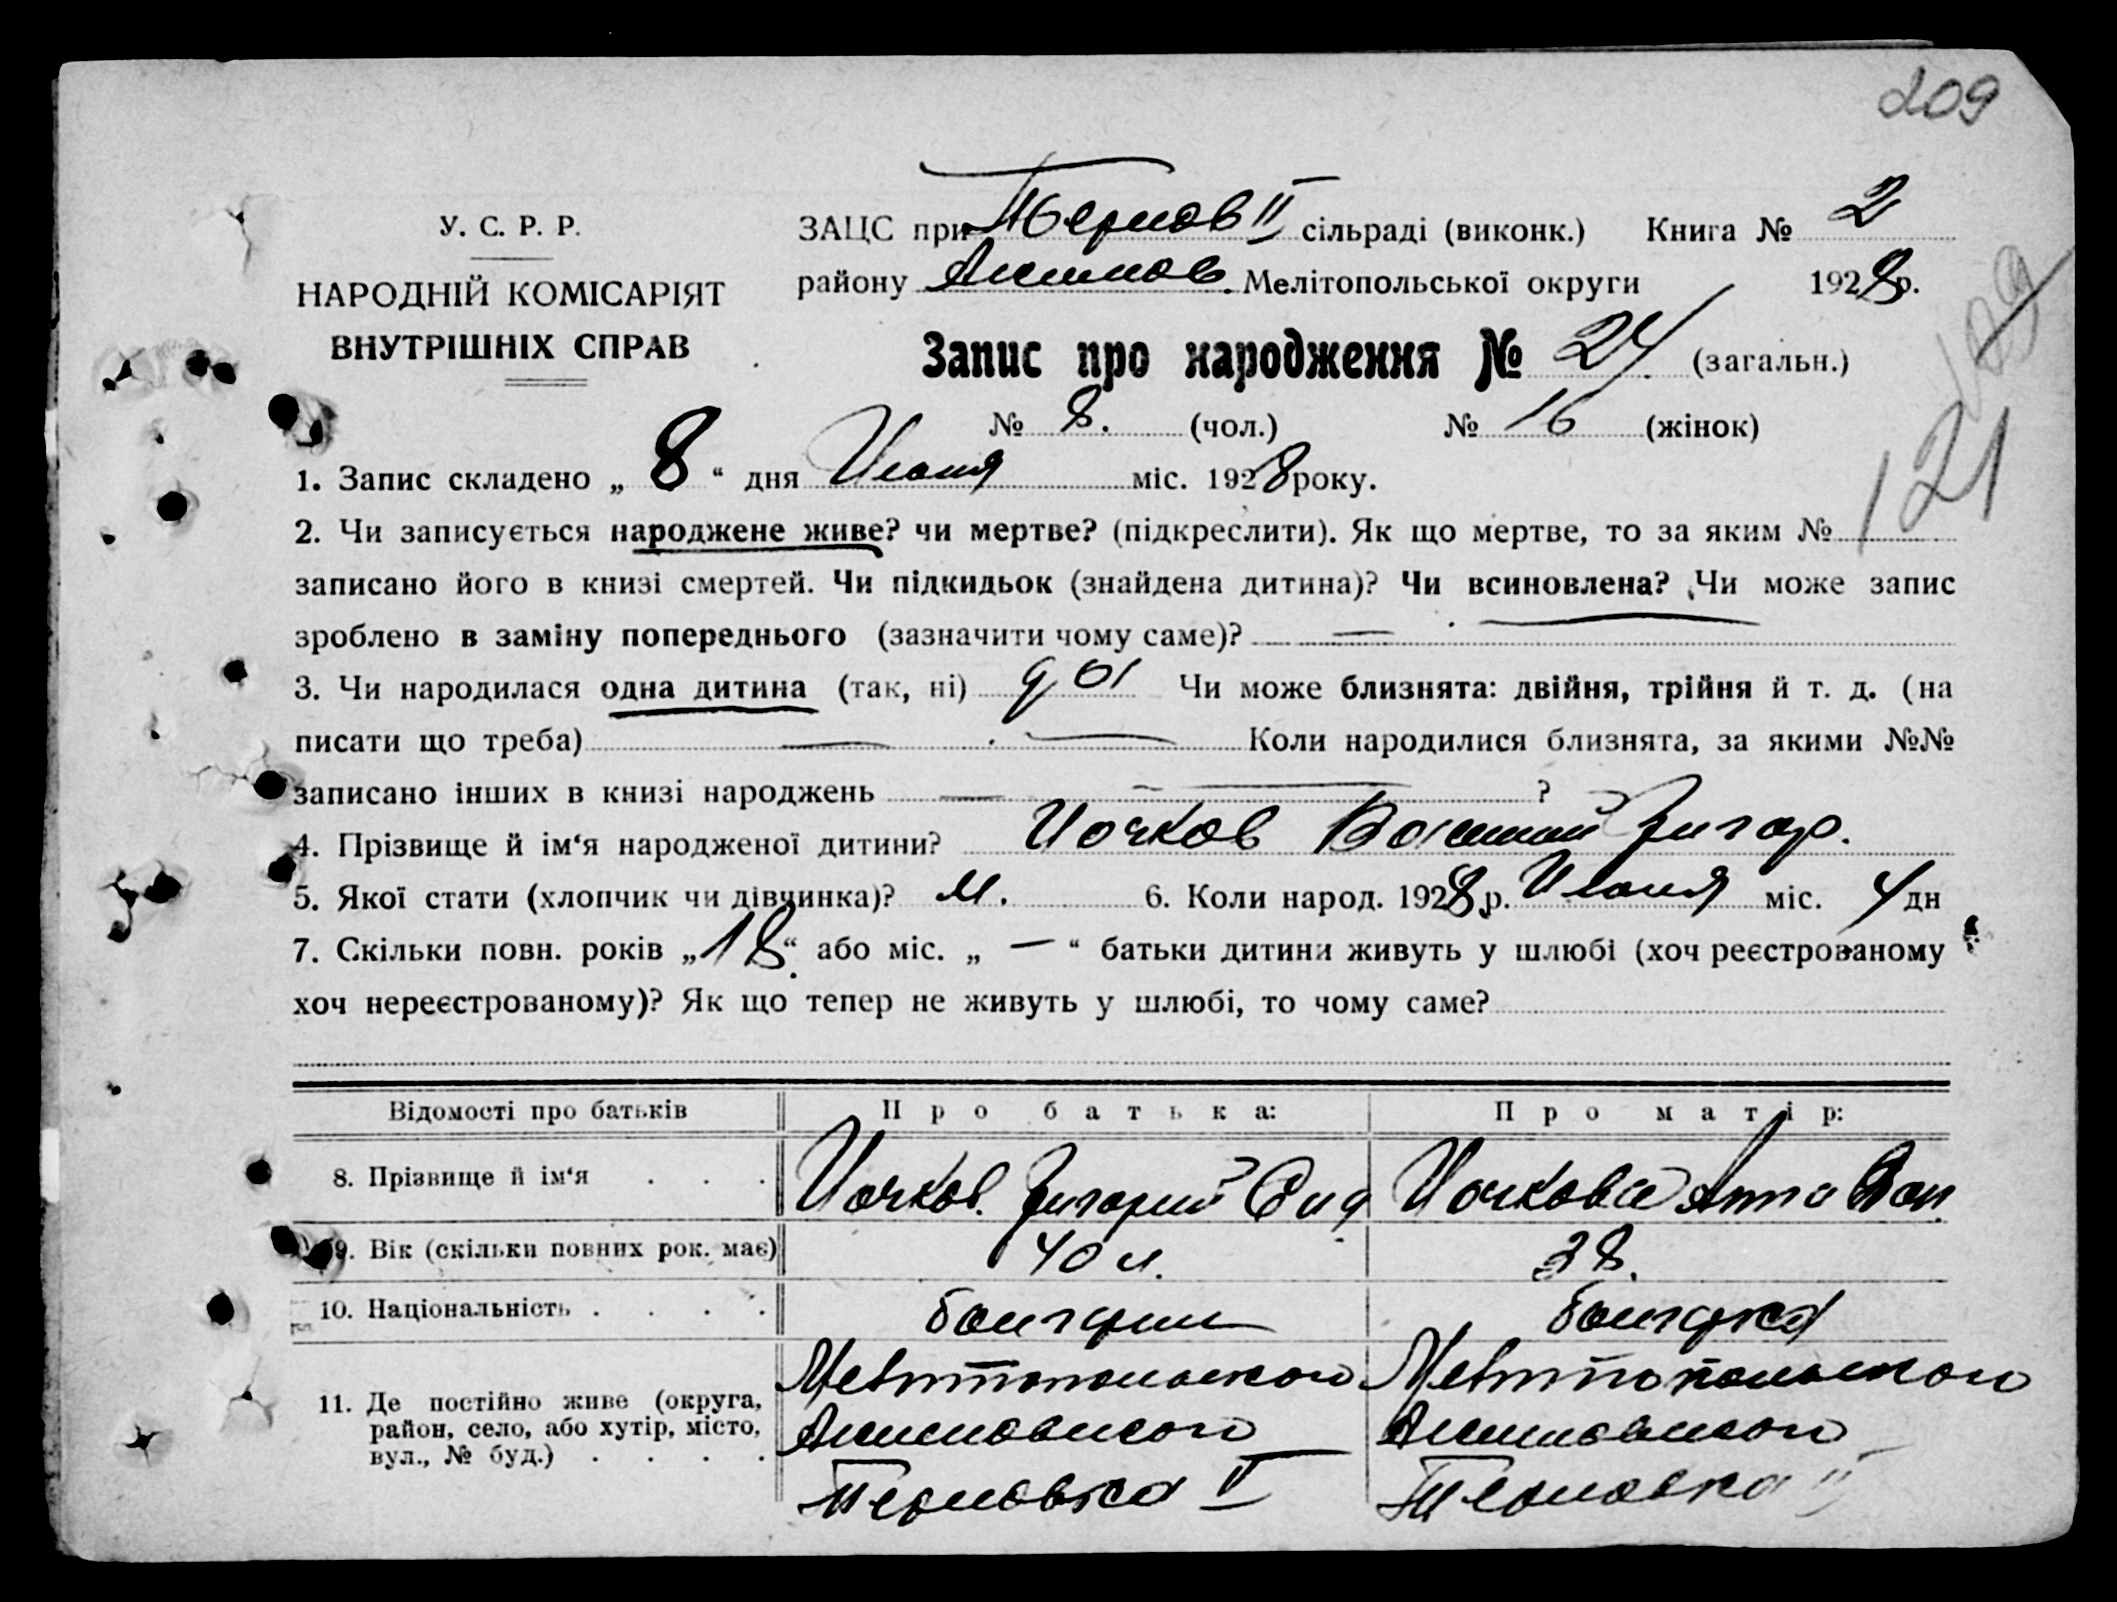 209
У. С. Р. Р.
НАРОДНІЙ КОМІСАРІЯТ
ВНУТРІШНІХ СПРАВ
ЗАЦС при Тернов II сільраді (виконк.) Книга № 2
району Акимов. Мелітопольської округи 1928 р.
Запис про народження № 24 (загальн.)
№ 8. (чол.) № 16 (жінок)
121
1. Запис складено „ 8 “ дня Июня міс. 1928 року.
2. Чи записується народжене живе? чи мертве? (підкреслити). Як що мертве, то за яким №
записано його в книзі смертей. Чи підкидьок (знайдена дитина)? Чи всиновлена? Чи може запис
зроблено в заміну попереднього (зазначити чому саме)? —
3. Чи народилася одна дитина (так, ні) да Чи може близнята: двійня, трійня й т. д. (на
писати що треба) — — Коли народилися близнята, за якими №№
записано інших в книзі народжень — — ?
4. Прізвище й ім‘я народженої дитини? Иочков Василий Григор.
5. Якої стати (хлопчик чи дівчинка)? м. 6. Коли народ. 1928 р. Июня міс. 4 дн
7. Скільки повн. років „ 18 “ або міс. „ — “ батьки дитини живуть у шлюбі (хоч реєстрованому
хоч нереєстрованому)? Як що тепер не живуть у шлюбі, то чому саме?
Відомості про батьків Про батька: Про матір:
8. Прізвище й ім‘я . . . Иочков Григорий Иочкова Анна
9. Вік (скільки повних рок. має) 40 л. 38.
10. Національність . . . . болгарин болгарка
11. Де постійно живе (округа,
район, село, або хутір, місто,
вул., № буд.) . . . .
Мелитопольского Мелитопольского
Акимовского Акимовского
Терновка II Терновка II